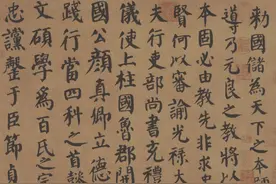 勅國儲為天下之本師
導乃元良之教將以
本固必由教先非求忠
賢何以審諭光祿大
夫行吏部尚書充禮
儀使上柱國魯郡開
國公顏真卿立德
踐行當四科之首懿
文碩學為百氏之宗
忠讜罄于臣節貞